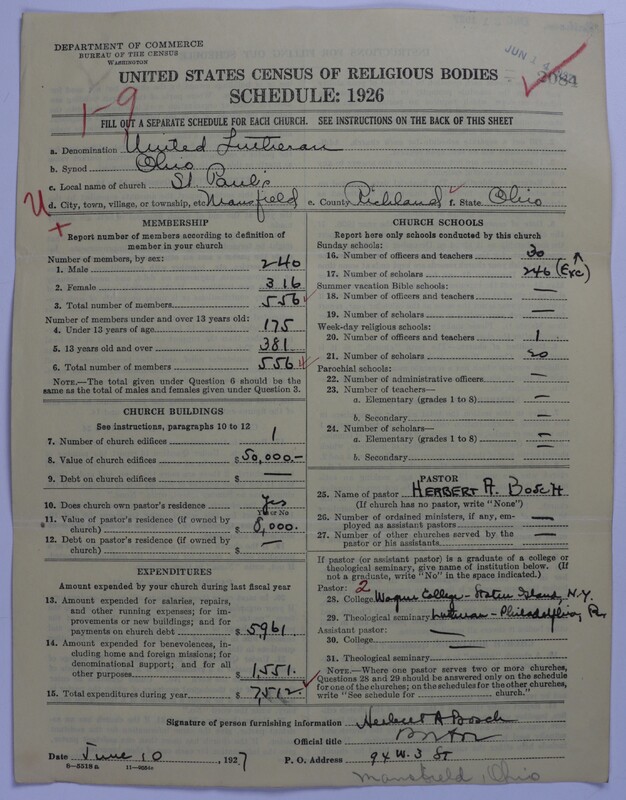 DEPARTMENT OF COMMERCE
BUREAU OF THE CENSUS
WASHINGTON
JUN 14
2084
UNITED STATES CENSUS OF RELIGIOUS BODIES
SCHEDULE: 1926
1-9
FILL OUT A SEPARATE SCHEDULE FOR EACH CHURCH. SEE INSTRUCTIONS ON THE BACK OF THIS SHEET
a. Denomination United Lutheran
b. Synod Ohio
c. Local name of church St Paul's
U d. City, town, village, or township, etc Mansfield e. County Richland f. State Ohio
MEMBERSHIP
Report number of members according to definition of
member in your church
Number of members, by sex:
1. Male 240
2. Female 316
3. Total number of members 556
Number of members under and over 13 years old:
4. Under 13 years of age 175
5. 13 years old and over 381
6. Total number of members 556
NOTE.—The total given under Question 6 should be
the same as the total of males and females given under Question 3.
CHURCH BUILDINGS
See instructions, paragraphs 10 to 12
7. Number of church edifices 1
8. Value of church edifices $ 50,000.—
9. Debt on church edifices $ —
10. Does church own pastor's residence Yes
Yes or No
11. Value of pastor's residence (if owned by
church) $ 8,000.
12. Debt on pastor's residence (if owned by
church) $ —
EXPENDITURES
Amount expended by your church during last fiscal year
13. Amount expended for salaries, repairs,
and other running expenses; for im-
provements or new buildings; and for
payments on church debt $ 5961
14. Amount expended for benevolences, in-
cluding home and foreign missions; for
denominational support; and for all
other purposes $ 1,551.
15. Total expenditures during year $ 7,512.
CHURCH SCHOOLS
Report here only schools conducted by this church
Sunday schools:
16. Number of officers and teachers 30
17. Number of scholars 246 (Exc)
Summer vacation Bible schools:
18. Number of officers and teachers —
19. Number of scholars —
Week-day religious schools:
20. Number of officers and teachers 1
21. Number of scholars 20
Parochial schools:
22. Number of administrative officers —
23. Number of teachers—
a. Elementary (grades 1 to 8) —
b. Secondary —
24. Number of scholars—
a. Elementary (grades 1 to 8) —
b. Secondary —
PASTOR
25. Name of pastor HERBERT A. BOSCH
(If church has no pastor, write "None")
26. Number of ordained ministers, if any, em-
ployed as assistant pastors —
27. Number of other churches served by the
pastor or his assistants —
If pastor (or assistant pastor) is a graduate of a college or
theological seminary, give name of institution below. (If
not a graduate, write "No" in the space indicated.)
Pastor: 2
28. College Wagner College - Staten Island, N.Y.
29. Theological seminary Lutheran - Philadelphia, Pa
Assistant pastor:
30. College —
31. Theological seminary —
NOTE.—Where one pastor serves two or more churches,
Questions 28 and 29 should be answered only on the schedule
for one of the churches; on the schedules for the other churches,
write "See schedule for church."
Signature of person furnishing information Herbert A Bosch
Official title Pastor
Date June 10, 1927 P. O. Address 94 W. 3 St
8-5518a
Mansfield, Ohio